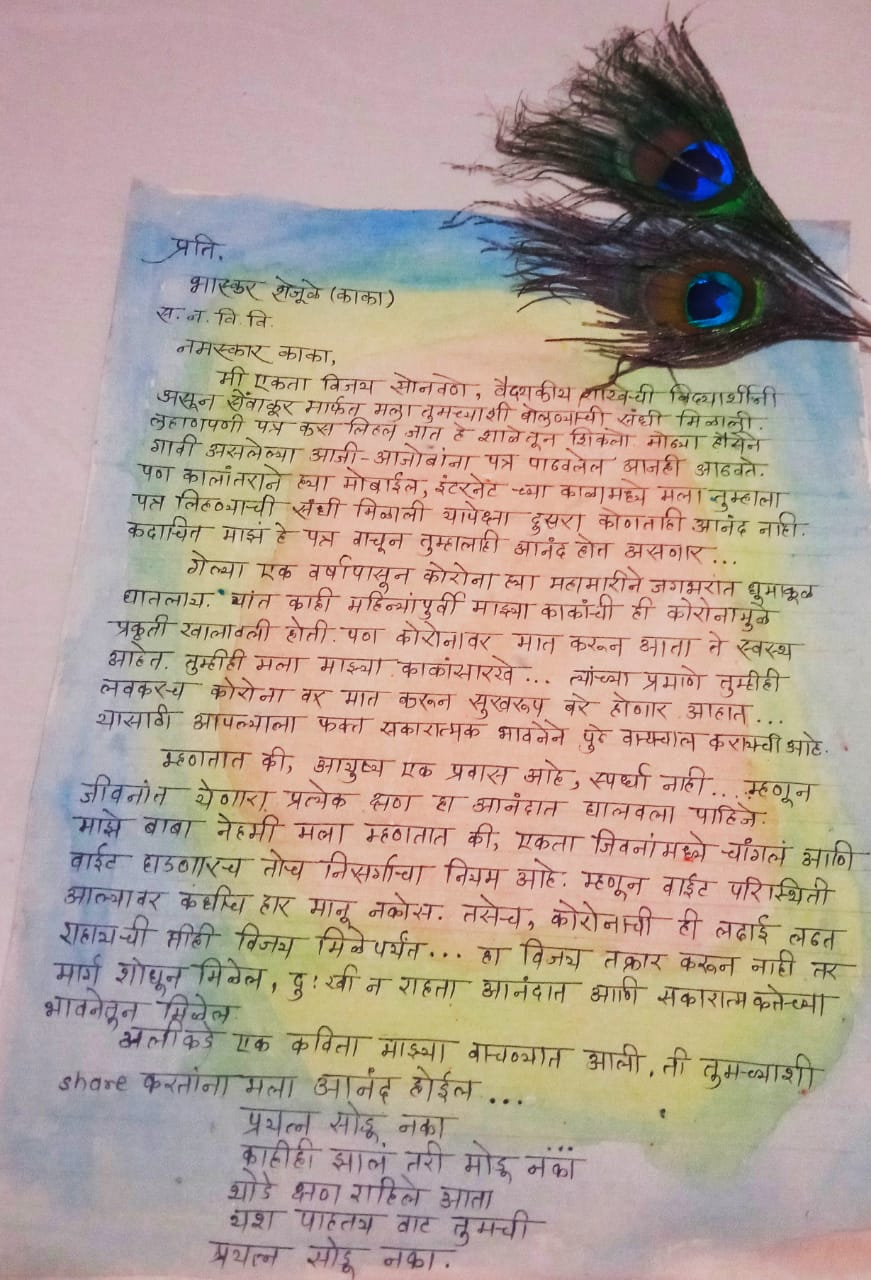 प्रति.
भास्कर शेजूळे (काका)
स. न. वि. वि.
नमस्कार काका,
मी एकता विजय सोनवणे, वैद्यकीय शाखेची विद्यार्थीनी
असून मला तुमच्याशी बोलण्याची संधी मिळाली.
लहाणपणी पत्र कस लिहल जात हे शाळेतून शिकलो मोठ्या हौसेने
गावी असलेल्या आजी-आजोबांना पत्र पाठवलेल आजही आठवते.
पण कालांतराने ह्या मोबाईल, इंटरनेट च्या काळामध्ये मला तुम्हाला
पत्र लिहण्याची संधी मिळाली यापेक्षा दुसरा कोणताही आनंद नाही.
कदाचित माझं हे पत्र वाचून तुम्हालाही आनंद होत असणार...
गेल्या एक वर्षापासून कोरोना ह्या महामारीने जगभरात धुमाकूळ
घातलाय. यांत काही महिन्यांपुर्वी माझ्या काकांची ही कोरोनामुळे
प्रकृती खालावली होती. पण कोरोनावर मात करून आता ते स्वस्थ
आहेत. तुम्हीही मला माझ्या काकांसारखे... त्यांच्या प्रमाणे तुम्हीही
लवकरच कोरोना वर मात करून सुखरूप बरे होणार आहात...
यासाठी आपल्याला फक्त सकारात्मक भावनेने पुढे वाटचाल करायची आहे.
म्हणतात की, आयुष्य एक प्रवास आहे, स्पर्धा नाही... म्हणून
जीवनांत येणारा प्रत्येक क्षण हा आनंदात घालवला पाहिजे.
माझे बाबा नेहमी मला म्हणतात की, एकता जिवनांमध्ये चांगलं आणि
वाईट घडणारच तोच निसर्गाचा नियम आहे. म्हणून वाईट परिस्थिती
आल्यावर कधीच हार मानू नकोस. तसेच, कोरोनाची ही लढाई लढत
राहायची तीही विजय मिळेपर्यंत... हा विजय तक्रार करून नाही तर
मार्ग शोधून मिळेल, दुःखी न राहता आनंदात आणि सकारात्मकतेच्या
भावनेतून मिळेल.
अलीकडे एक कविता माझ्या वाचण्यात आली, ती तुमच्याशी
share करतांना मला आनंद होईल...
प्रयत्न सोडू नका
काहीही झालं तरी मोडू नका
थोडे क्षण राहिले आता
यश पाहतय वाट तुमची
प्रयत्न सोडू नका.